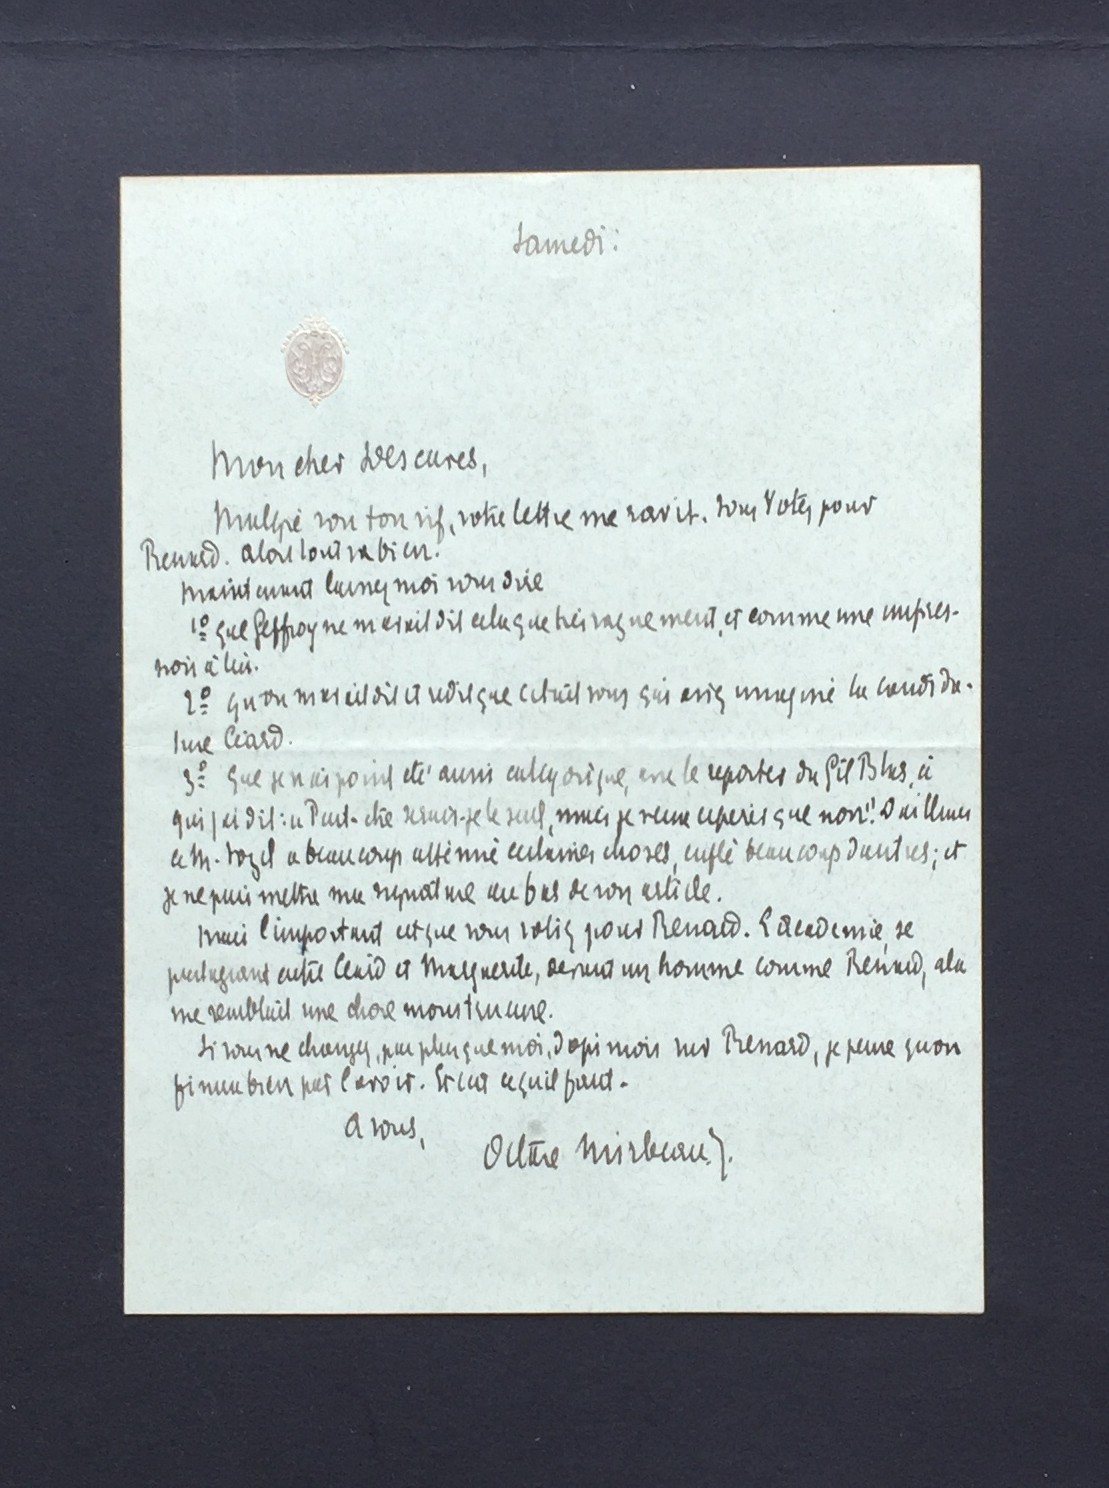 Samedi :
Mon cher Descaves,
Malgré son ton vif, votre lettre me ravit. Vous votez pour
Renard. Alors tout va bien.
Maintenant laissez moi vous dire
1º que Geffroy ne m'avait dit cela que très vaguement, et comme une impres-
sion à lui.
2º qu'on m'avait dit et redit que c'était vous qui aviez imaginé la candida-
ture Céard.
3º que je n'ai point été aussi catégorique, avec le reporter du Gil Blas, à
qui j'ai dit : « Peut-être serais-je le seul, mais je veux espérer que non ! » D'ailleurs
ce M. Vozel a beaucoup atténué certaines choses, enflé beaucoup d'autres ; et
je ne puis mettre ma signature au bas de son article.
Mais l'important est que vous votiez pour Renard. L'académie, se
partageant entre Céard et Margueritte, devant un homme comme Renard, cela
me semblait une chose monstrueuse.
Si vous ne changez, pas plus que moi, d'opinion sur Renard, je pense qu'on
finira bien par l'avoir. Et c'est ce qu'il faut.
A vous,
Octave Mirbeau.